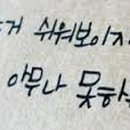 쉬워보이지
아무나 못하